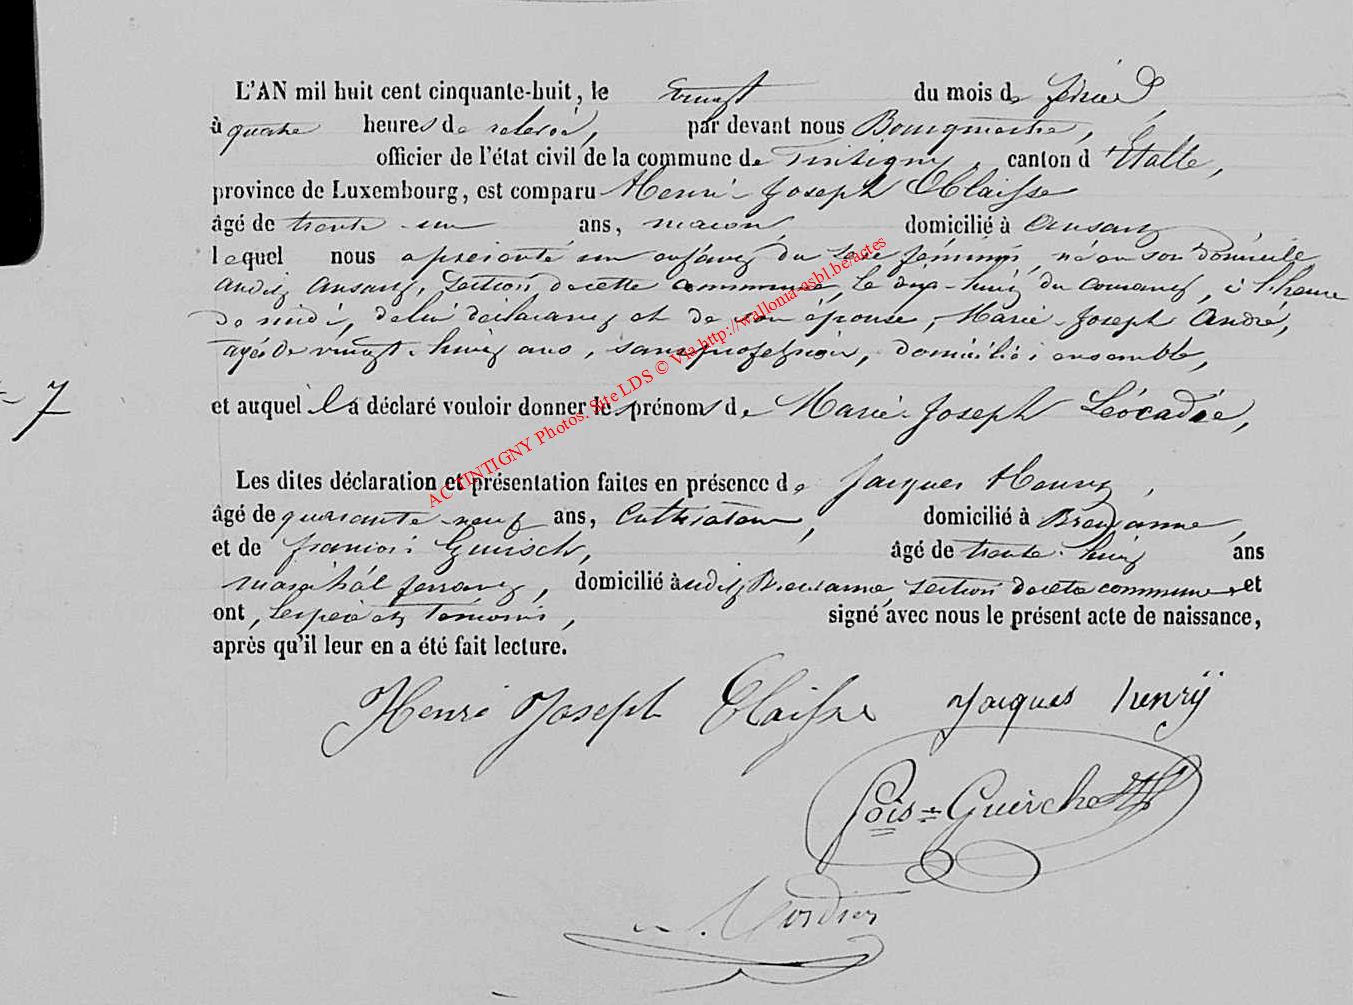 L'AN mil huit cent cinquante-huit, le vingt du mois de février,
à quatre heures de relevée, par devant nous Bourgmestre,
officier de l'état civil de la commune de Tintigny, canton d'Etalle,
province de Luxembourg, est comparu Henri-Joseph Claisse
âgé de trente-un ans, maçon, domicilié à Ansart
lequel nous a présenté un enfant du sexe féminin, né en son domicile
audit Ansart, section de cette commune, le dix-huit du courant, à l'heure
de midi, de lui déclarant et de son épouse, Marie-Joseph André,
agée de vingt-huit ans, sans profession, domiciliés ensemble,
7
et auquel il a déclaré vouloir donner les prénoms de Marie-Joseph Léocadie,
Les dites déclaration et présentation faites en présence de Jacques Henry,
âgé de quarante-neuf ans, Cultivateur, domicilié à Breuvanne,
et de françois Guirsch, âgé de trente-huit ans
maréchal ferrant, domicilié audit Breuvanne, section de cette commune et
ont, les père et témoins, signé avec nous le présent acte de naissance,
après qu'il leur en a été fait lecture.
Henri Joseph Claisse Jacques henrÿ
fois = Guirche
AC TINTIGNY Photos. Site LDS © Via http://wallonia-asbl.be/actes